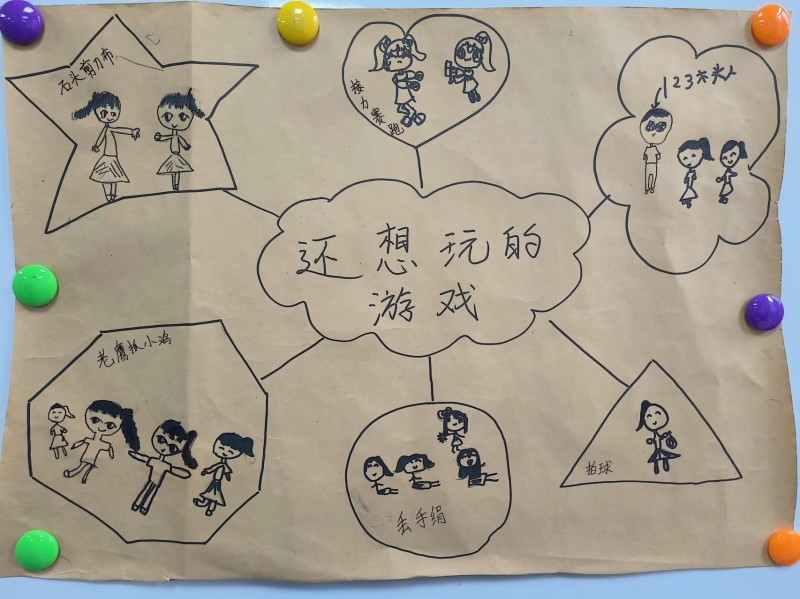 石头剪刀布
接力赛跑
123木头人
还想玩的
游戏
老鹰抓小鸡
丢手绢
拍球